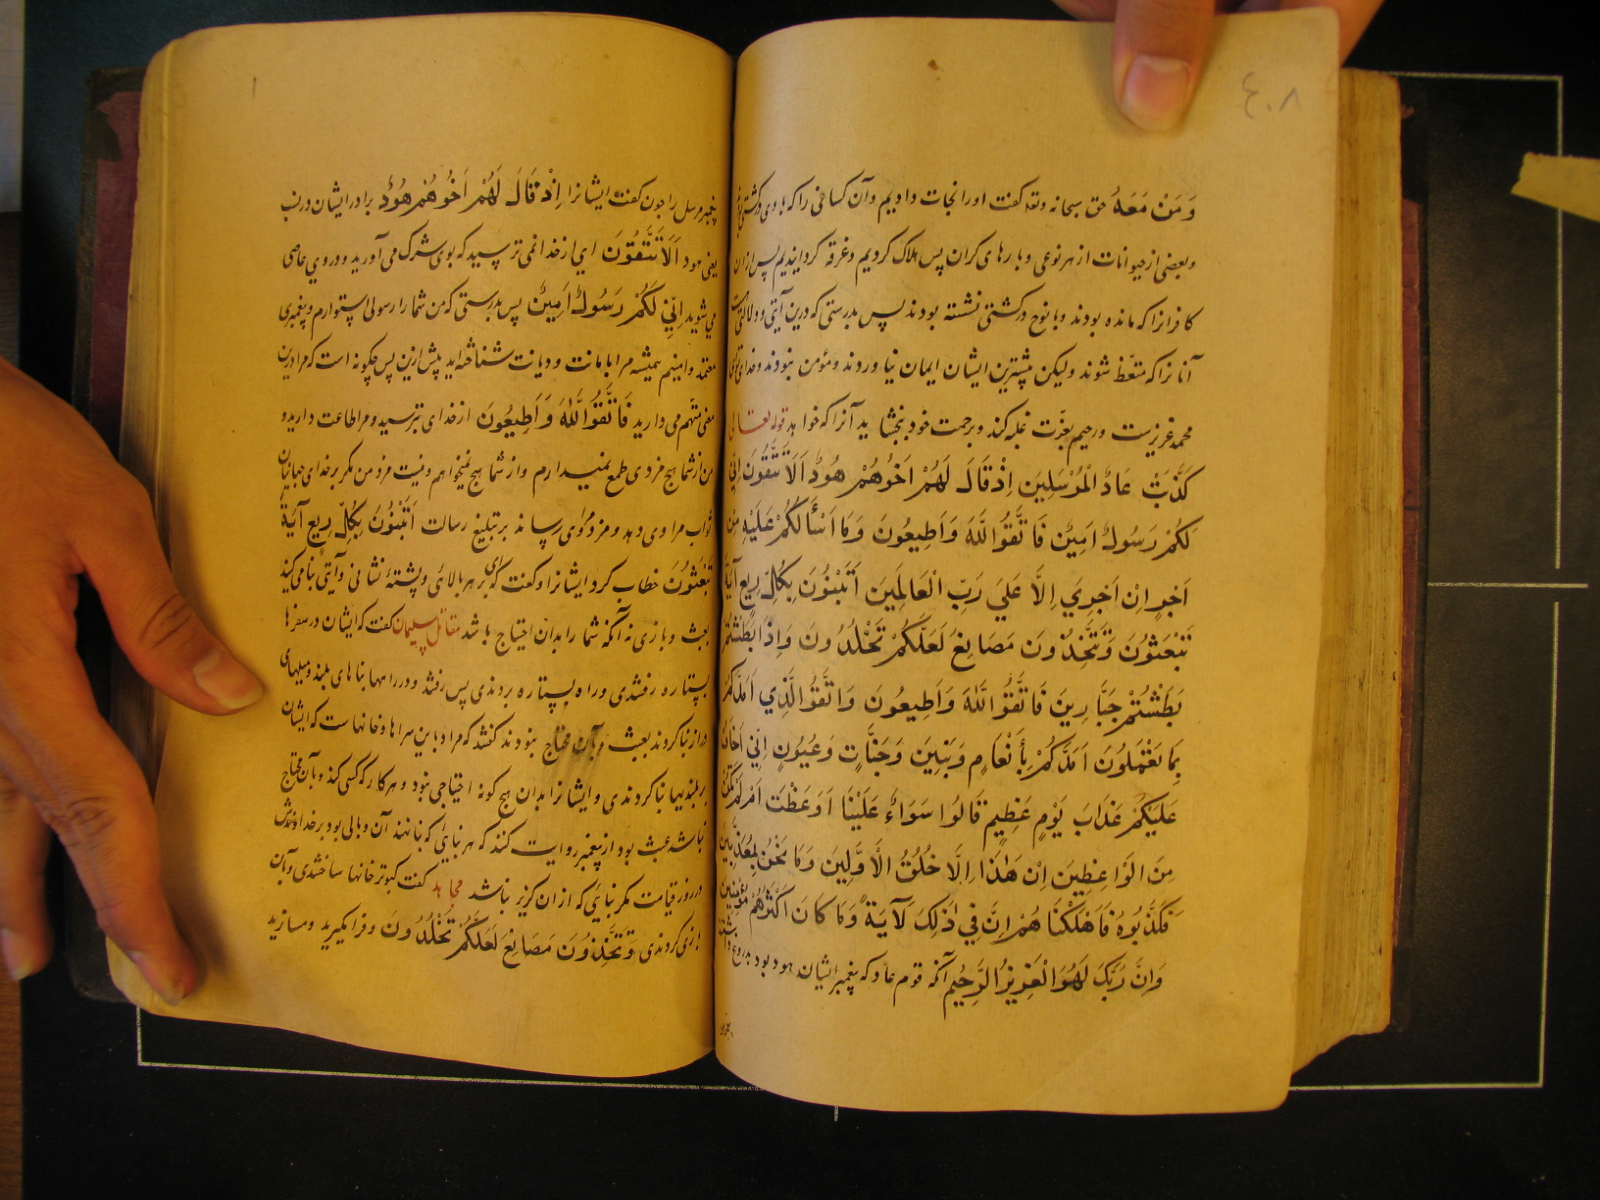 ٤٠٨
وَمَنْ مَعَهُ حق سبحانه وتعه گفت اورا نجات دادیم وآن کسانی را که با وی در کشتی بودند
وبعضی از حیوانات از هر نوعی وبارهای گران پس هلاک کردیم وغرقه گردانیدیم پس از ان
کافرانرا که مانده بودند وبا نوح در کشتی نشسته بودند پس بدرستی که درین آیتی ودلالتی است
آنانرا که متعّظ شوند ولیکن بیشترین ایشان ایمان نیاوردند ومؤمن نبودند وخدای تو ای
محمد عزیزست ورحیم بعزّت غلبه کند وبرحمت خود ببخشاید آنرا که خواهد قوله تعالی
كَذَّبَتْ عَادٌ الْمُرْسَلِينَ اِذْ قَالَ لَهُمْ اَخُوهُمْ هُودٌ اَلَا تَتَّقُونَ اِنِّي
لَكُمْ رَسُولٌ اَمِينٌ فَاتَّقُوا اللّٰهَ وَاَطِيعُونَ وَمَا اَسْأَلُكُمْ عَلَيْهِ مِنْ
اَجْرٍ اِنْ اَجْرِيَ اِلَّا عَلَى رَبِّ الْعَالَمِينَ اَتَبْنُونَ بِكُلِّ رِيعٍ آيَةً
تَعْبَثُونَ وَتَتَّخِذُونَ مَصَانِعَ لَعَلَّكُمْ تَخْلُدُونَ وَاِذَا بَطَشْتُمْ
بَطَشْتُمْ جَبَّارِينَ فَاتَّقُوا اللّٰهَ وَاَطِيعُونَ وَاتَّقُوا الَّذِي اَمَدَّكُمْ
بِمَا تَعْمَلُونَ اَمَدَّكُمْ بِأَنْعَامٍ وَبَنِينَ وَجَنَّاتٍ وَعُيُونٍ اِنِّي اَخَافُ
عَلَيْكُمْ عَذَابَ يَوْمٍ عَظِيمٍ قَالُوا سَوَاءٌ عَلَيْنَا اَوَعَظْتَ اَمْ لَمْ تَكُنْ
مِنَ الْوَاعِظِينَ اِنْ هٰذَا اِلَّا خُلُقُ الْاَوَّلِينَ وَمَا نَحْنُ بِمُعَذَّبِينَ
فَكَذَّبُوهُ فَاَهْلَكْنَاهُمْ اِنَّ فِي ذٰلِكَ لَآيَةً وَمَا كَانَ اَكْثَرُهُمْ مُؤْمِنِينَ
وَاِنَّ رَبَّكَ لَهُوَ الْعَزِيزُ الرَّحِيمُ آنکه قوم عاد که پیغمبر ایشان هود بود بدروغ داشتند
١
پیغمبر مرسل را چون گفت ایشانرا اِذْ قَالَ لَهُمْ اَخُوهُمْ هُودٌ برادر ایشان در نسب
یعنی هود اَلَا تَتَّقُونَ ای از خدا نمی ترسید که بوی شرک می آورید ودر وی عاصی
می شوید اِنِّي لَكُمْ رَسُولٌ اَمِينٌ پس بدرستی که من شما را رسولی استوارم وپیغمبری
معتمد وامینم همیشه مرا بامانت ودیانت شناخته اید پیش ازین پس چگونه است که مرا درین
معنی متهم می دارید فَاتَّقُوا اللّٰهَ وَاَطِيعُونَ از خدای بترسید ومرا طاعت دارید و
من از شما هیچ مزدی طمع نمیدارم واز شما هیچ نمیخواهم ونیست مزد من مگر بر خدای جهانیان
ثواب مرا وی دهد ومزد مرا وی رساند بر تبلیغ رسالت اَتَبْنُونَ بِكُلِّ رِيعٍ آيَةً
تَعْبَثُونَ خطاب کرد ایشانرا وگفت که ای بر هر بالائی وپشتهٔ نشانی وآیتی بنا می کنید
بعبث وبازی نه آنکه شما را بدان احتیاج باشد مقاتل سلیمان گفت که ایشان در سفرها
بستاره رفتندی وراه بستاره بردندی پس رفتند ودر راهها بناهای بلند ومیلهای
دراز بنا کردند بعبث وبآن محتاج نبودند گفتند که مراد باین سراها وخانهاست که ایشان
بر بلندیها بنا کردندی وایشانرا بدان هیچ گونه احتیاجی نبود وهر کار که کسی کند وبآن محتاج
نباشد عبث بود از پیغمبر روایت کنند که هر بنایی که بنا نهند آن وبالی بود بر خداوندش
در روز قیامت مگر بنایی که از ان گزیر نباشد مجاهد گفت کبوترخانها ساختندی وبآن
بازی کردندی وَتَتَّخِذُونَ مَصَانِعَ لَعَلَّكُمْ تَخْلُدُونَ وفرا میگیرید ومیسازید